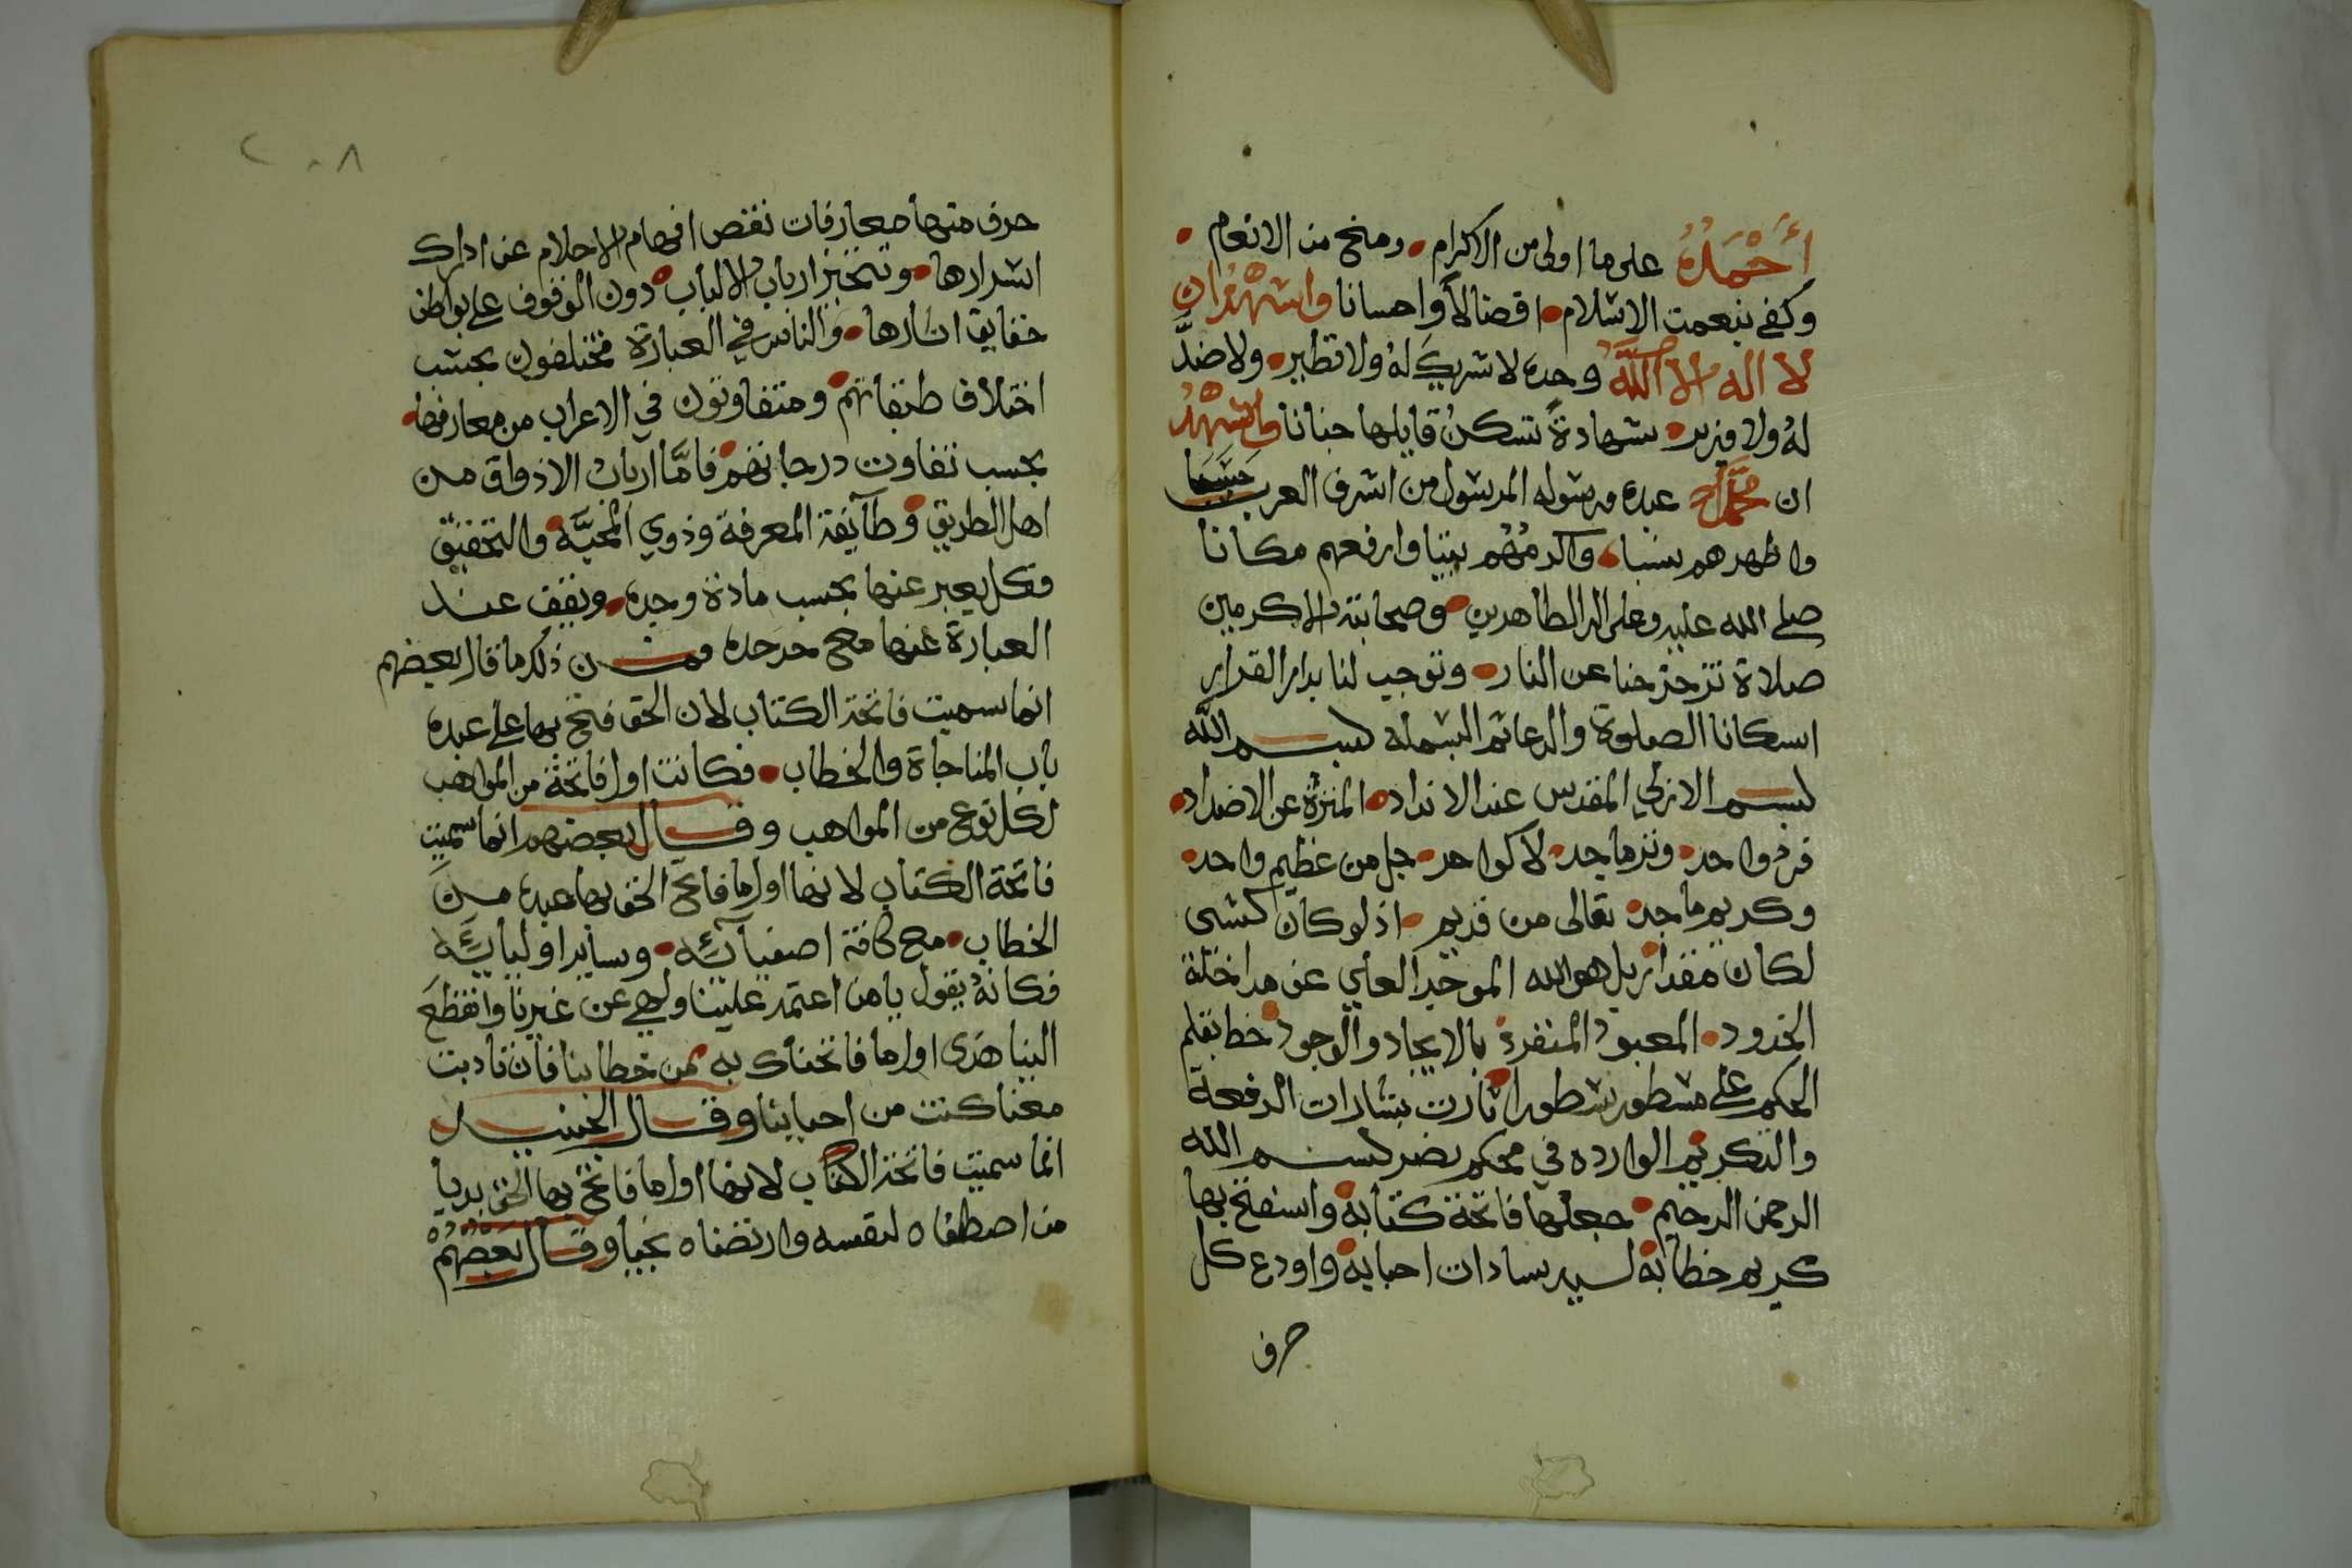 أحمده على ما اولى من الاكرام ومنح من الانعام
وكفى بنعمت الاسلام افضالا واحسانا واشهد ان
لا اله الا الله وحده لا شريك له ولا نظير ولا ضد
له ولا وزير شهادة تسكن قايلها جنانا واشهد
ان محمدا عبده ورسوله المرسول من اشرف العرب حسبا
واطهرهم نسبا واكرمهم بيتا وارفعهم مكانا
صلى الله عليه وعلى اله الطاهرين وصحابته الاكرمين
صلاة تزحزحنا عن النار وتوجب لنا بدار القرار
اسكانا الصلوة والدعا ثم البسملة بسم الله
بسم الازلي المقدس عند الانداد المنزه عن الاضداد
فرد واحد وتر ماجد لا كواحد جل من عظيم واحد
وكريم ماجد تعالى من قديم اذ لو كان كشى
لكان مقدار بل هو الله الموحيد العلي عن مداخلة
الحدود المعبود المنفرد بالايجاد والوجود خط بقلم
الحكم على مسطور سطور اثارت بشارات الرفعة
والتكريم الوارده في محكم بسم الله
الرحمن الرحيم جعلها فاتحة كتابه واستفتح بها
كريم خطابه لسيد سادات احبابه واودع كل
حرف
٢٠٨
حرف منها معارفات نقص افهام الاحلام عن ادراك
اسرارها وتتحير ارباب الالباب دون الوقوف على بواطن
حقايق اثارها والناس في العبارة مختلفون بحسب
اختلاف طبقاتهم ومتفاوتون في الاعراب من معارفها
بحسب تفاوت درجاتهم فاما ارباب الاذواق من
اهل الطريق وطآيفة المعرفة وذوي المحبة والتحقيق
فكل يعبر عنها بحسب مادة وجده ويقف عند
العبارة عنها مع حد حده فمن ذلك ما قال بعضهم
انما سميت فاتحة الكتاب لان الحق فتح بها على عبده
باب المناجاة والخطاب فكانت اول فاتحة من المواهب
لكل نوع من المواهب وقال بعضهم انما سميت
فاتحة الكتاب لانها اول ما فاتح الحق بها عبده من
الخطاب مع كافة اصفيآئه وساير اوليآئه
فكانه يقول يا من اعتمد علينا ولهي عن غيرنا وانقطع
الينا هذى اول ما فاتحناك به من خطابنا فان تادبت
معنا كنت من احبابنا وقال الجنيد
انما سميت فاتحة الكتاب لانها اول ما فاتح بها الحق بديا
من اصطفاه لنفسه وارتضاه نجيا وقال بعضهم